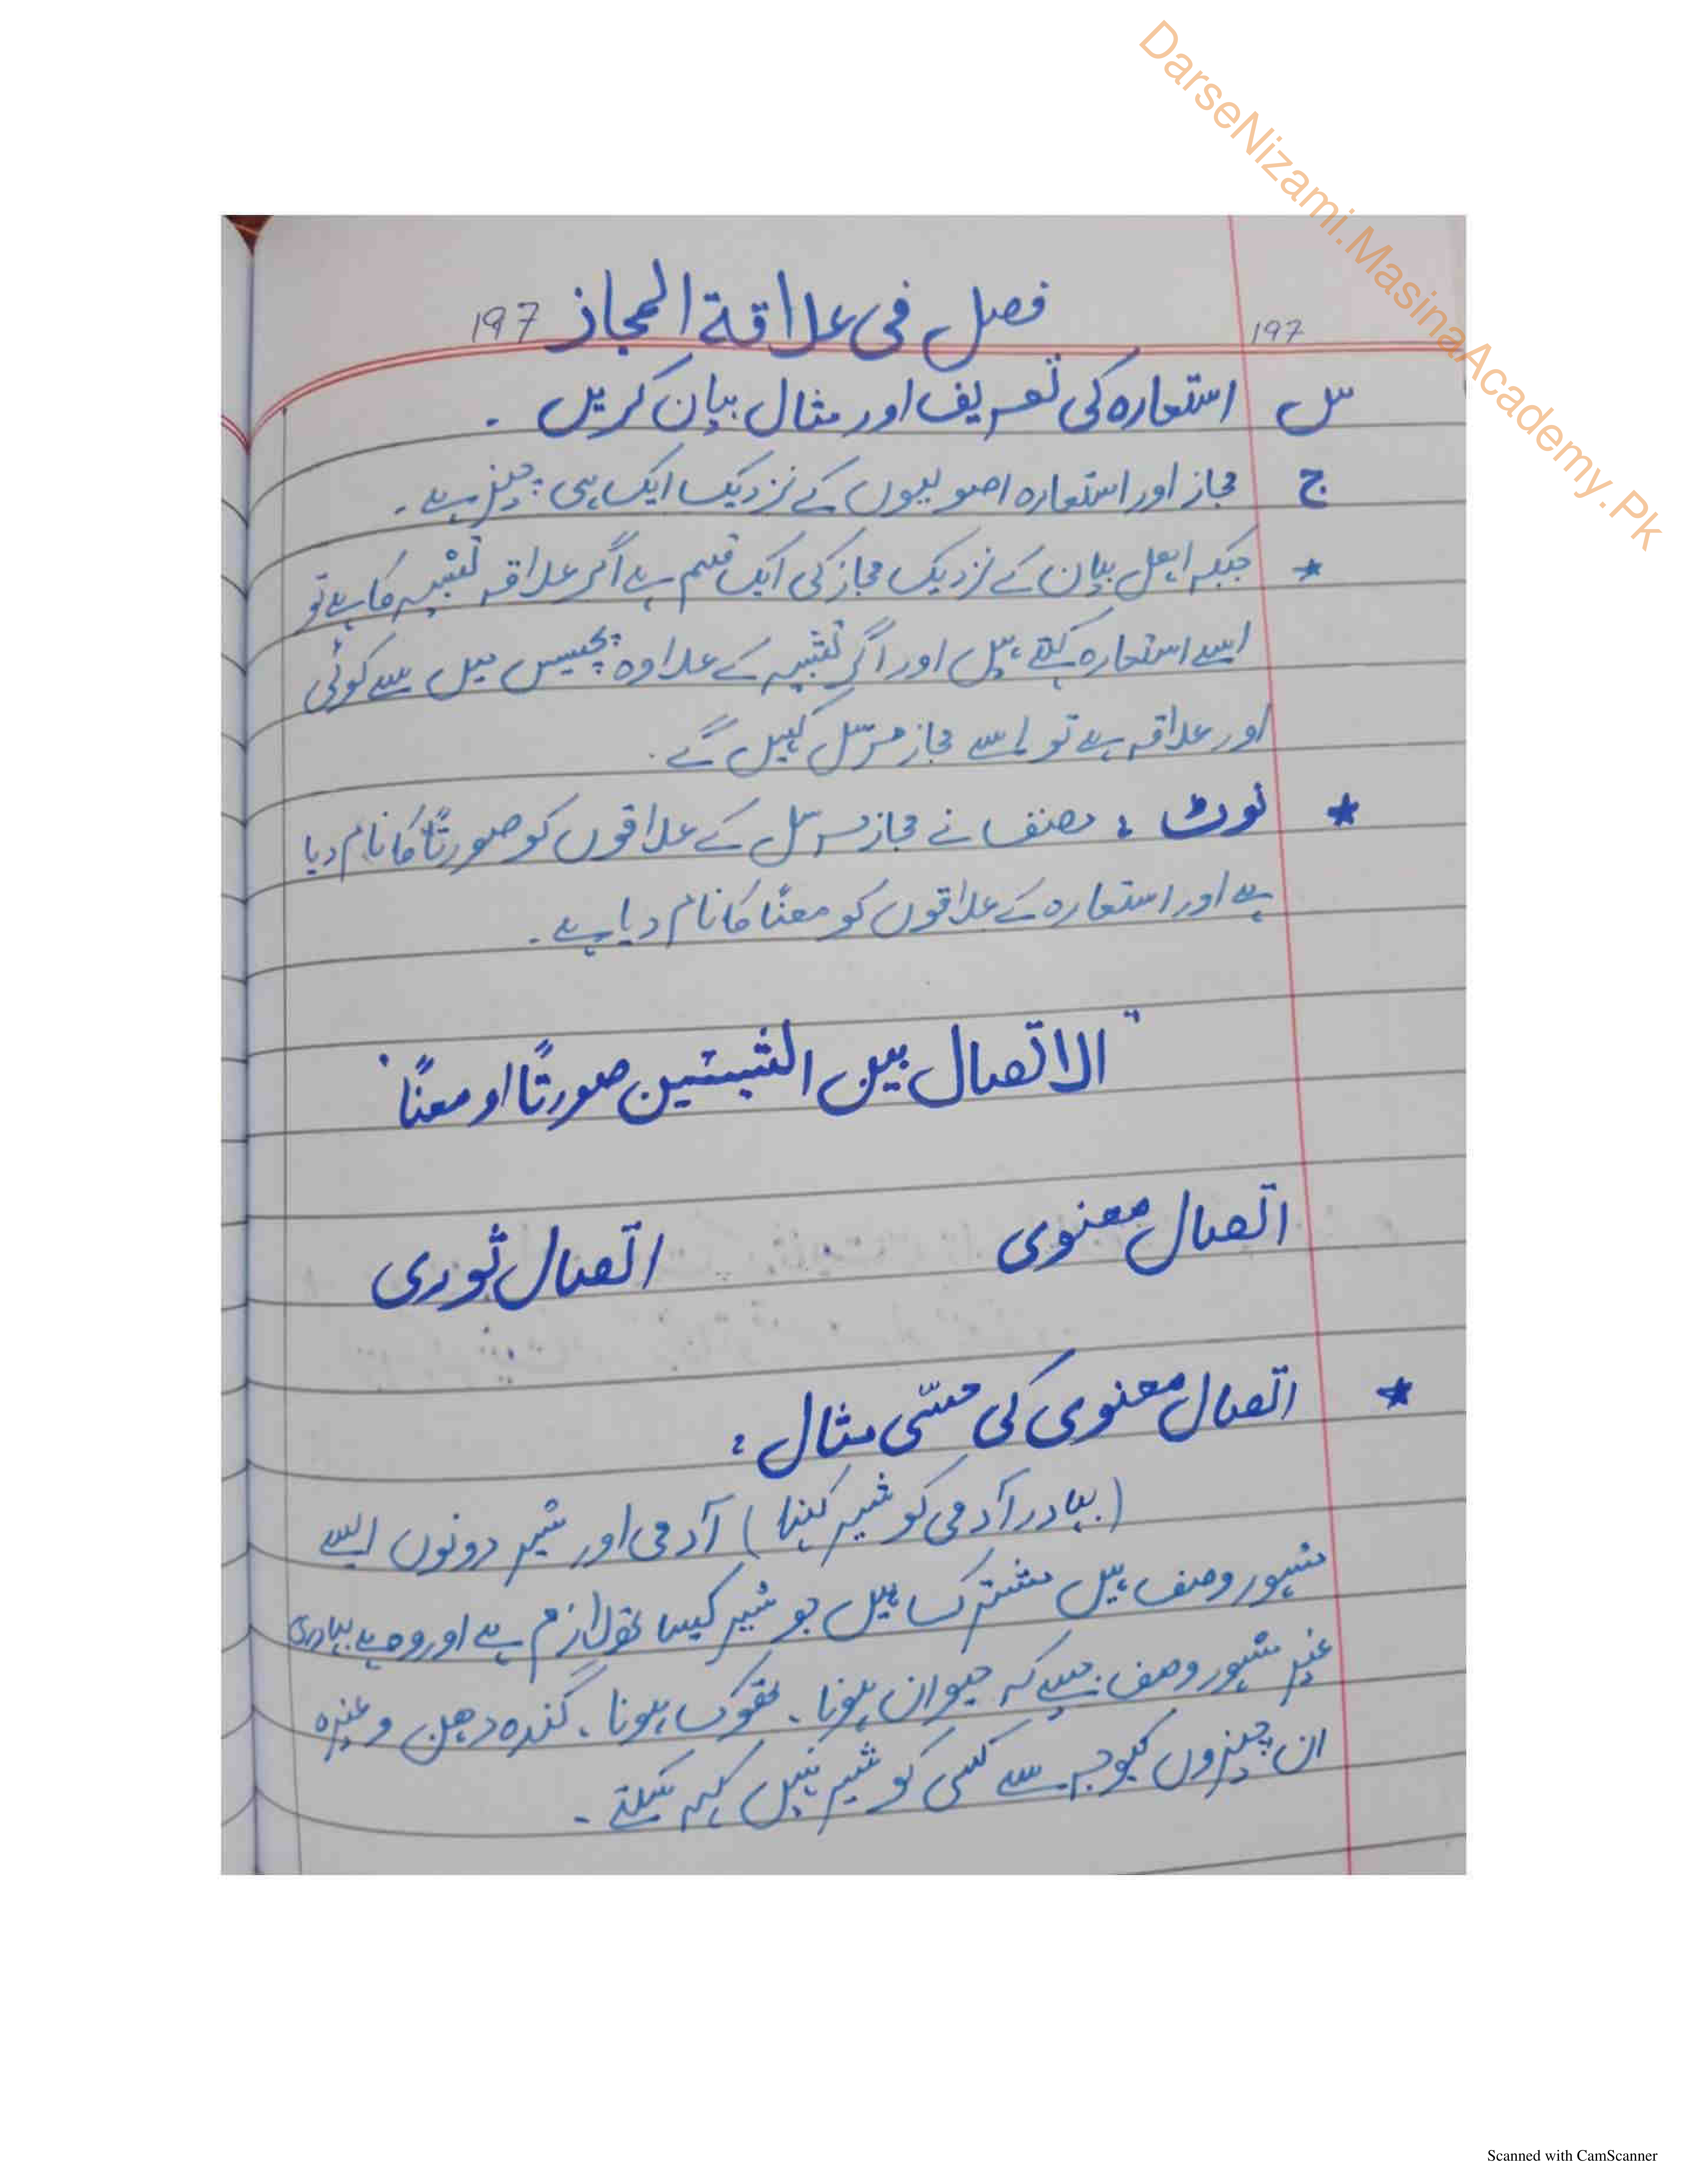 DarseNizami.MasinaAcademy.Pk
197 فصل فی علاقة المجاز 197
س استعارہ کی تعریف اور مثال بیان کریں ۔
ج مجاز اور استعارہ اصولیوں کے نزدیک ایک ہی چیز ہے ۔
* جبکہ اہل بیان کے نزدیک مجاز کی ایک قسم ہے اگر علاقہ تشبیہ کا ہے تو
اسے استعارہ کہتے ہیں اور اگر تشبیہ کے علاوہ پچیس میں سے کوئی
اور علاقہ ہے تو اسے مجاز مرسل کہیں گے ۔
* نوٹ : مصنف نے مجاز مرسل کے علاقوں کو صورتًا کا نام دیا
ہے اور استعارہ کے علاقوں کو معنًا کا نام دیا ہے ۔
"الاتصال بین الشیئین صورتًا او معنًا"
اتصال معنوی اتصال ثوری
* اتصال معنوی کی حسّی مثال :
(بہادر آدمی کو شیر کہنا) آدمی اور شیر دونوں ایسے
مشہور وصف میں مشترک ہیں جو شیر کیساتھ لازم ہے اور وہ ہے بہادری
غیر مشہور وصف جیسے کہ حیوان ہونا ۔ ہونا ۔ گندہ دھن وغیرہ
ان چیزوں کیوجہ سے کسی کو شیر نہیں کہہ سکتے ۔
Scanned with CamScanner